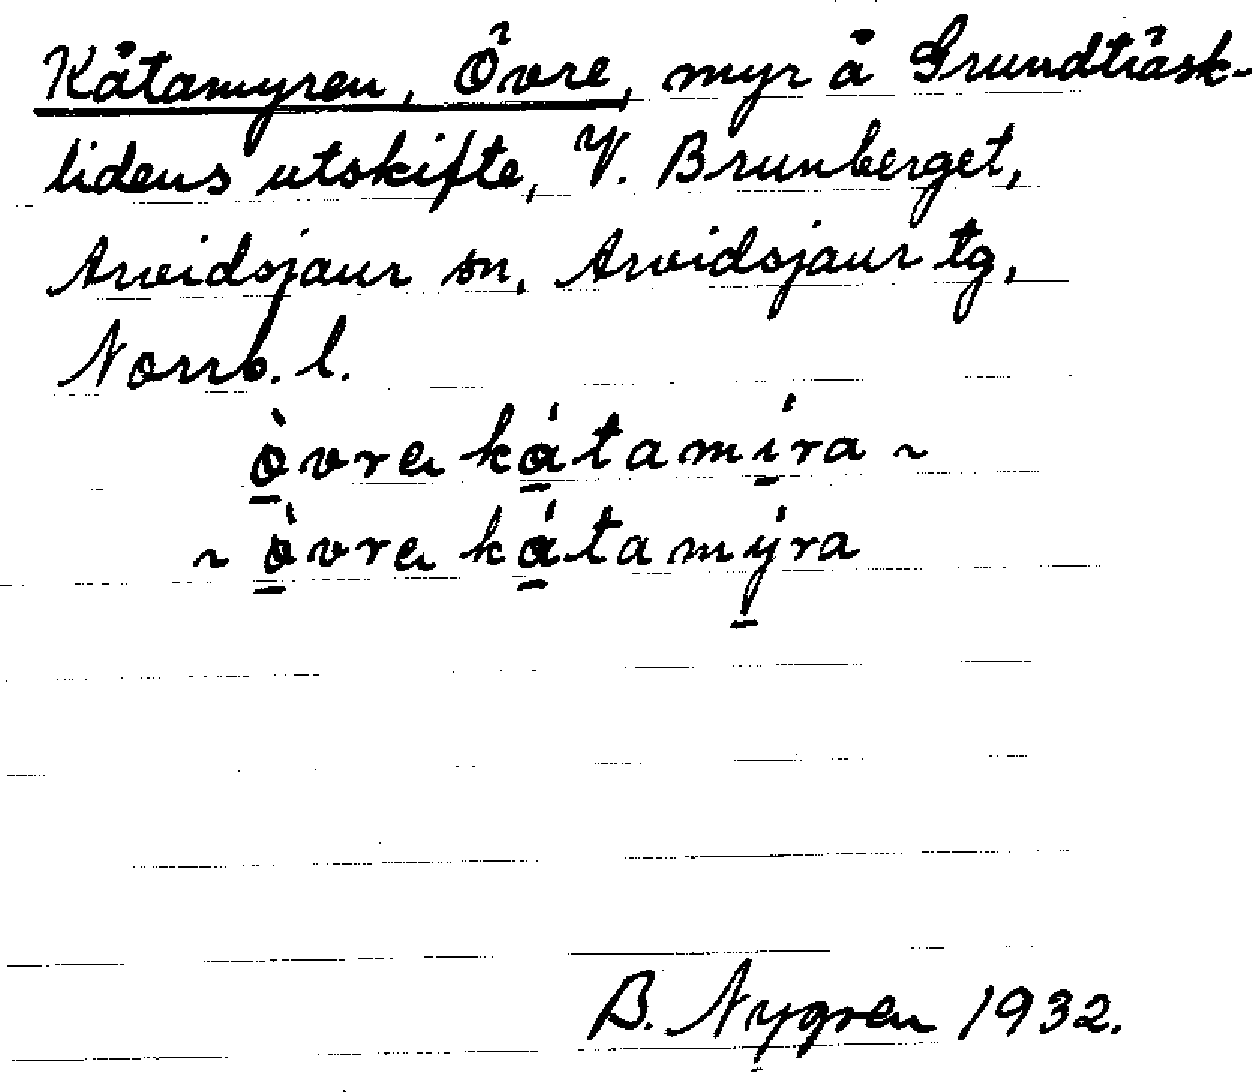 Kåtamyren, Övre, myr å Grundträsk-
lidens utskifte, V. Brunberget,
Arvidsjaur sn, Arvidsjaur tg,
Norrb. l.
ò̠vrɐ kǻ̠tamí̠ra ~
~ ò̠vrɐ kǻ̠tamý̠ra
B. Nygren 1932.